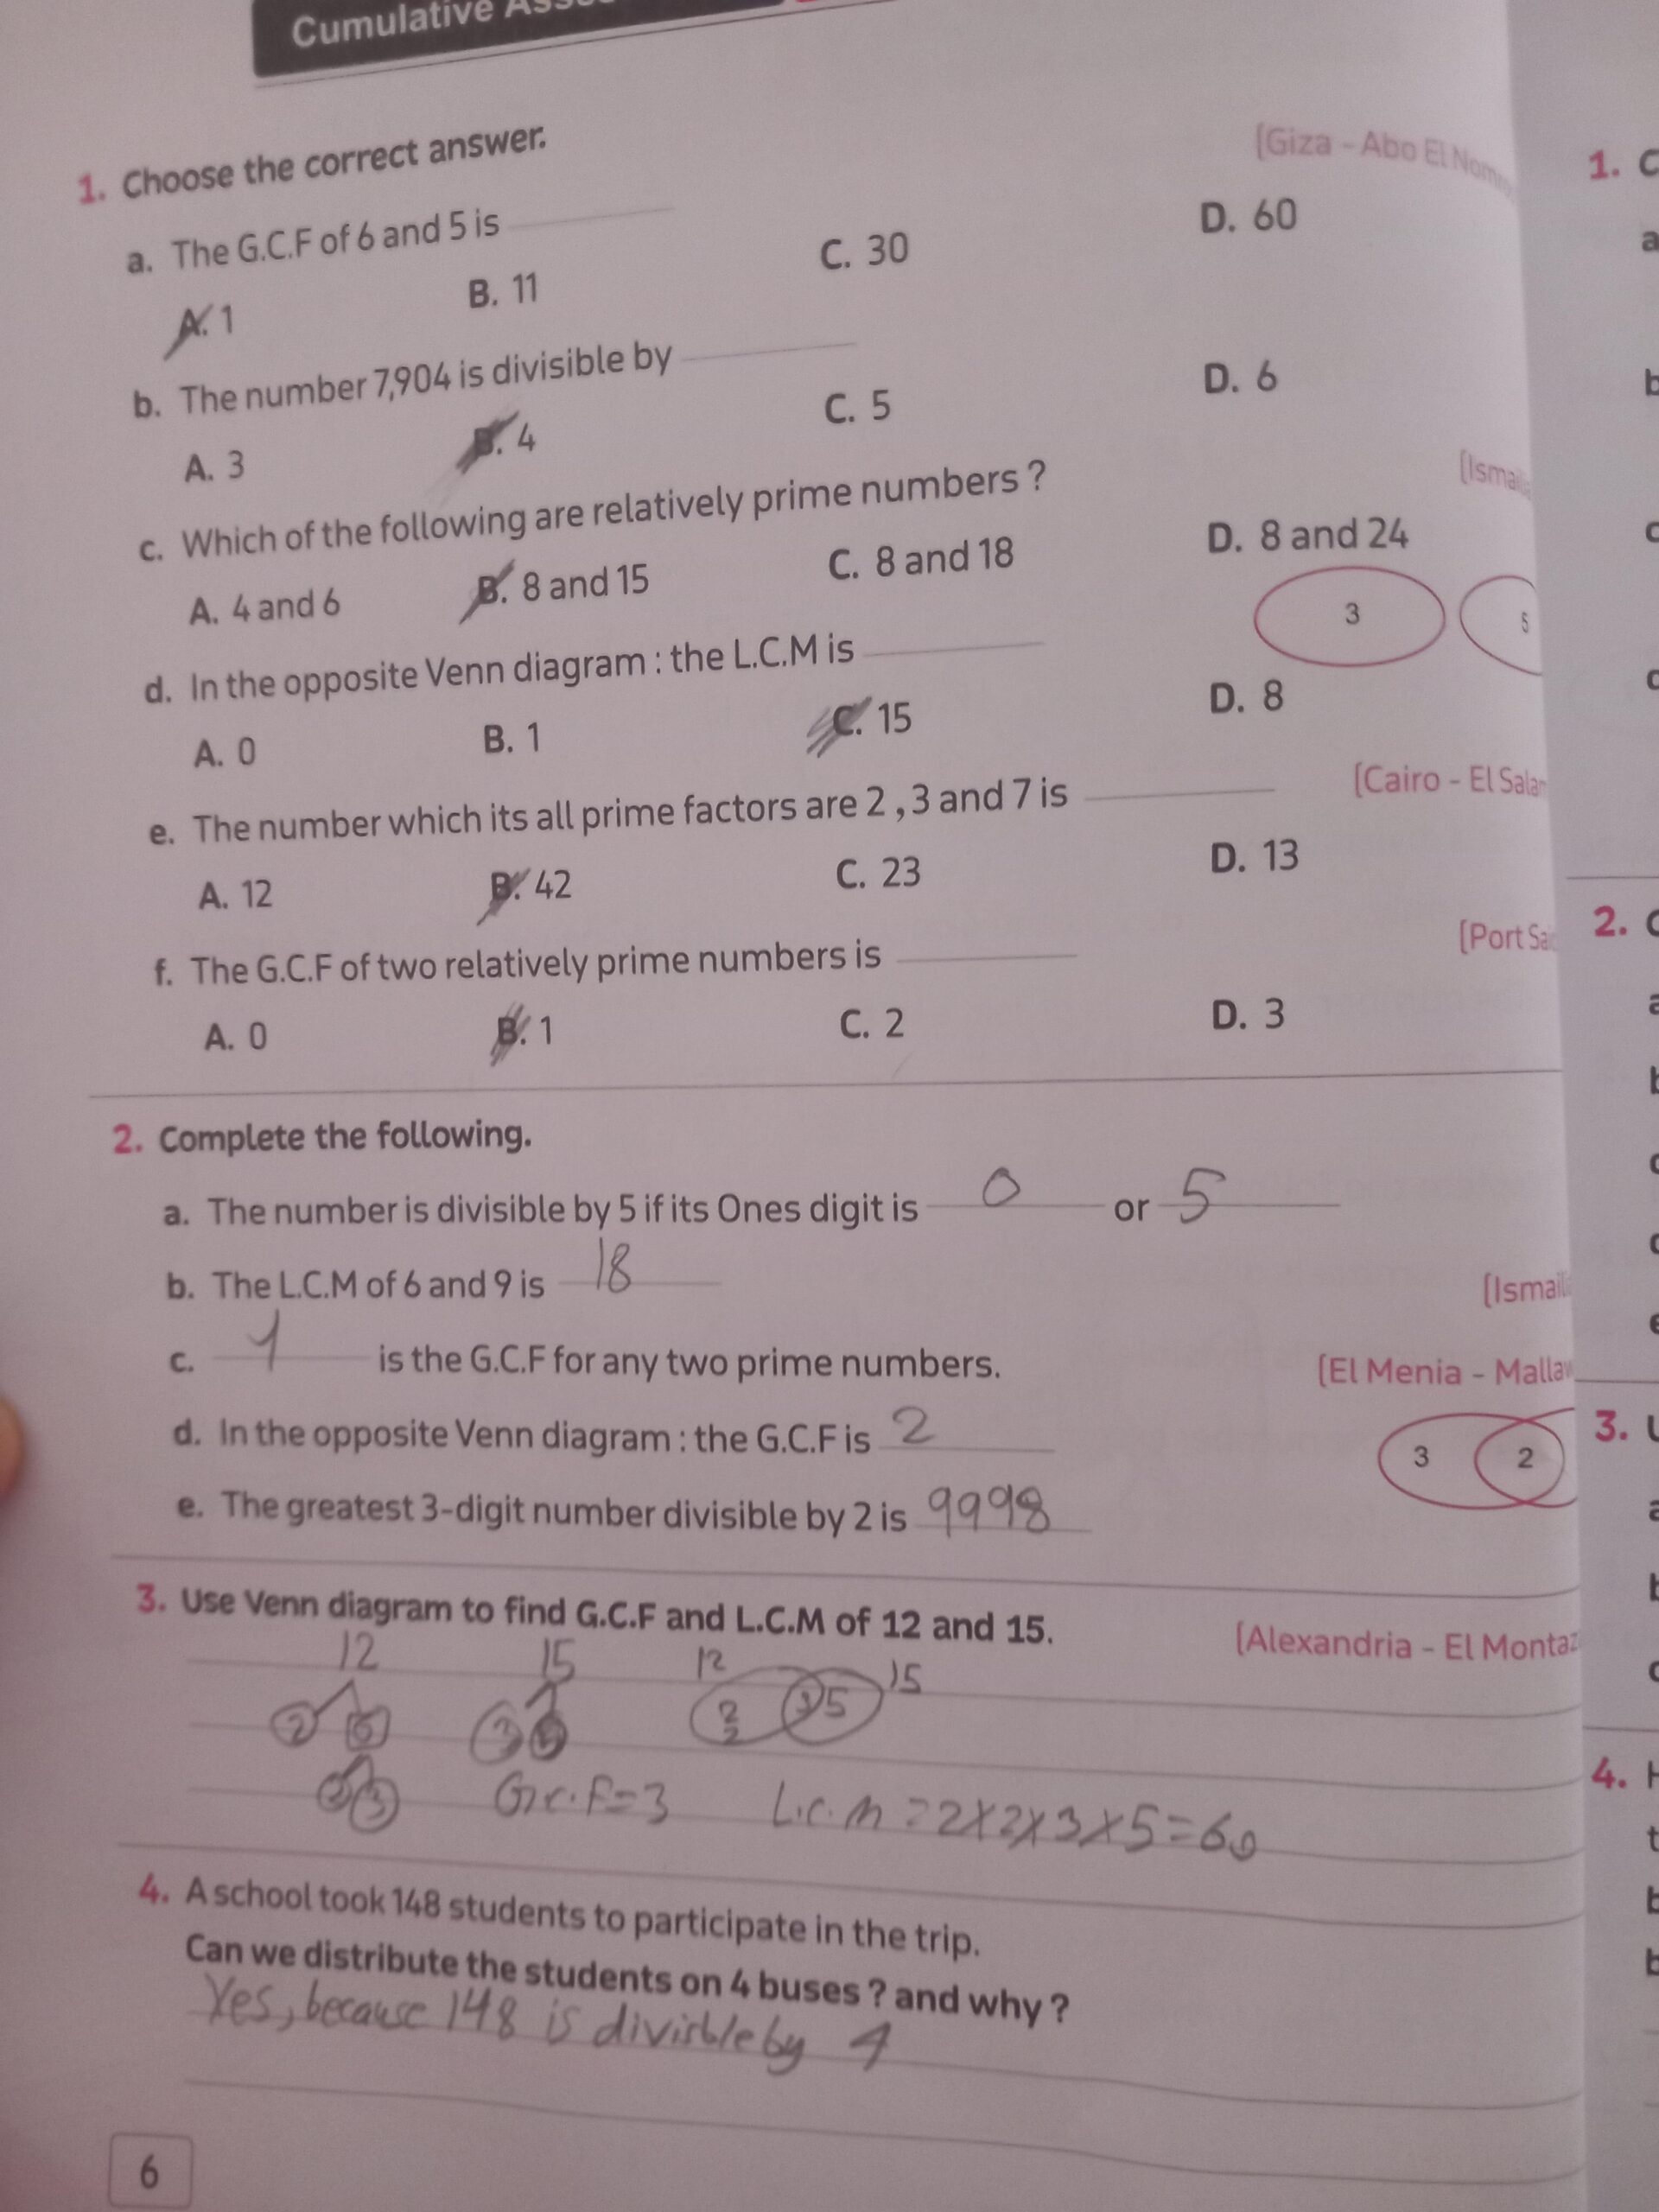 Cumulative
1. Choose the correct answer.
[Giza - Abo El
a. The G.C.F of 6 and 5 is
A. 1 B. 11 C. 30 D. 60
b. The number 7,904 is divisible by
A. 3 B. 4 C. 5 D. 6
c. Which of the following are relatively prime numbers ?
A. 4 and 6 B. 8 and 15 C. 8 and 18 D. 8 and 24
d. In the opposite Venn diagram : the L.C.M is
3 5
A. 0 B. 1 C. 15 D. 8
e. The number which its all prime factors are 2 , 3 and 7 is
[Cairo - El
A. 12 B. 42 C. 23 D. 13
f. The G.C.F of two relatively prime numbers is
[Port
A. 0 B. 1 C. 2 D. 3
2. Complete the following.
a. The number is divisible by 5 if its Ones digit is 0 or 5
b. The L.C.M of 6 and 9 is 18
c. 1 is the G.C.F for any two prime numbers.
[El Menia -
d. In the opposite Venn diagram : the G.C.F is 2
3 2
e. The greatest 3-digit number divisible by 2 is 9998
3. Use Venn diagram to find G.C.F and L.C.M of 12 and 15.
[Alexandria - El
12 15 12 15
2 6 3 5 2 2 3 5
2 3 G.c.F=3 L.c.m =2x2x3x5=60
4. A school took 148 students to participate in the trip.
Can we distribute the students on 4 buses ? and why ?
Yes, because 148 is divisble by 4
6
1.
2.
3.
4.